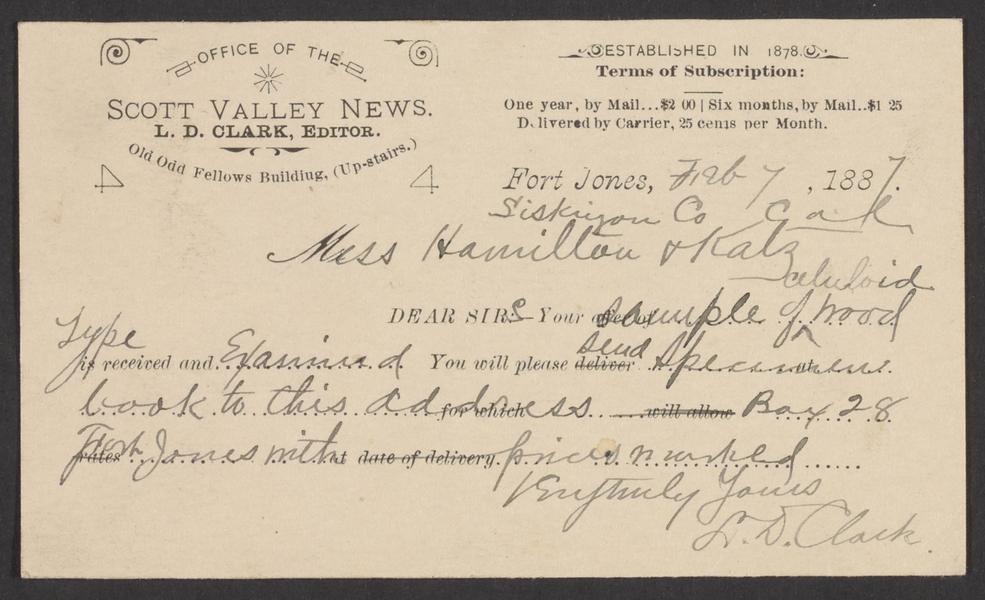 OFFICE OF THE
SCOTT VALLEY NEWS.
L. D. CLARK, EDITOR.
Old Odd Fellows Building, (Up-stairs.)
ESTABLISHED IN 1878.
Terms of Subscription:
One year, by Mail...$2 00 | Six months, by Mail..$1 25
Delivered by Carrier, 25 cents per Month.
Fort Jones, Feb 7, 1887.
Siskiyou Co Cal
Mess Hamilton & Katz
DEAR SIRS Your sample of celuloid wood
Type is received and Examined You will please deliver send specimen
book to this address for which will allow Box 28
rates Fort Jones with at date of delivery prices marked
Very truly Yours
L. D. Clark.